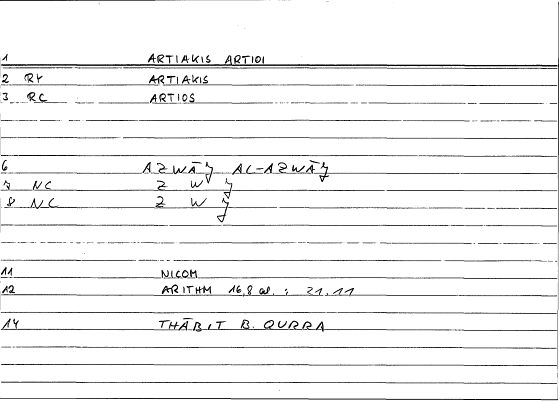 1 ARTIAKIS ARTIOI
2 RY ARTIAKIS
3 RC ARTIOS
6 AZWĀǦ AL-AZWĀǦ
7 NC Z W Ǧ
8 NC Z W Ǧ
11 NICOM
12 ARITHM 16,8 al. ; 21,11
14 THĀBIT B. QURRA